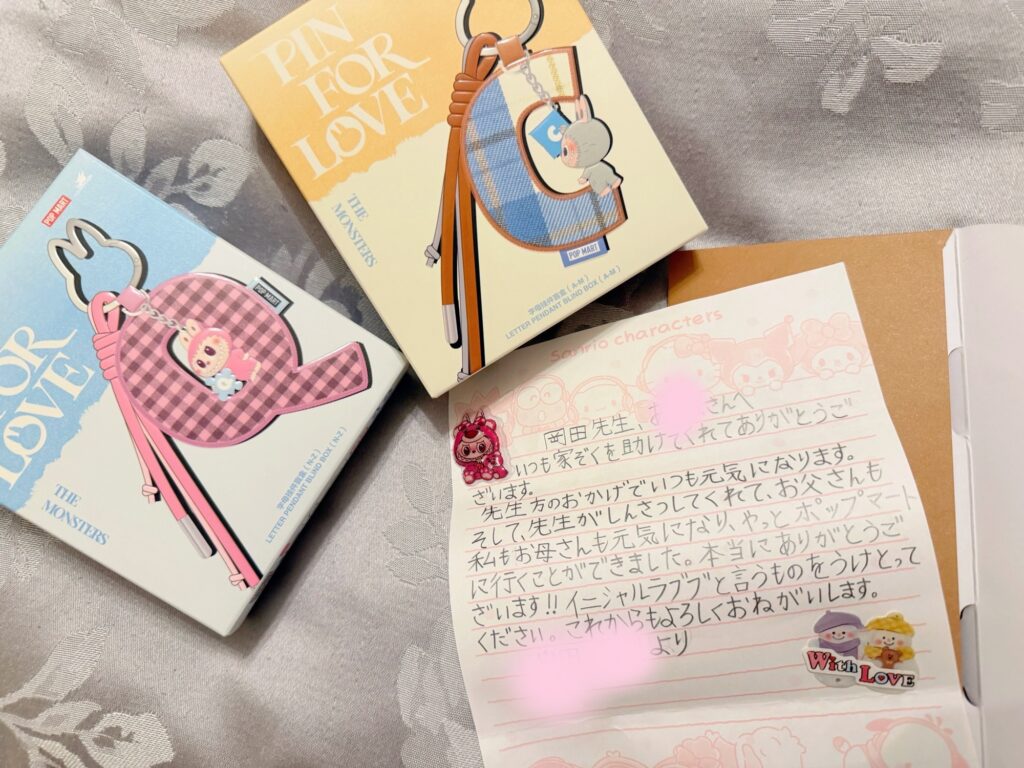 PIN
FOR
LOVE
THE
MONSTERS
POP MART
字母挂件盲盒（A-M）
LETTER PENDANT BLIND BOX (A-M)
POP MART
OR
LOVE
THE
MONSTERS
POP MART
字母挂件盲盒（N-Z）
LETTER PENDANT BLIND BOX (N-Z)
Sanrio characters
岡田先生、お さんへ
いつも家ぞくを助けてくれてありがとうご
ざいます。
先生方のおかげでいつも元気になります。
そして、先生がしんさつしてくれて、お父さんも
私もお母さんも元気になり、やっとポップマート
に行くことができました。本当にありがとうご
ざいます!! イニシャルラブブと言うものをうけとって
ください。これからもよろしくおねがいします。
より
With LOVE